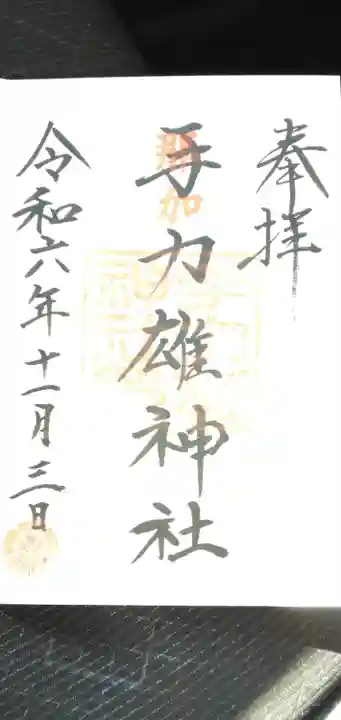 奉拝
那加
手力雄神社
令和六年十一月三日